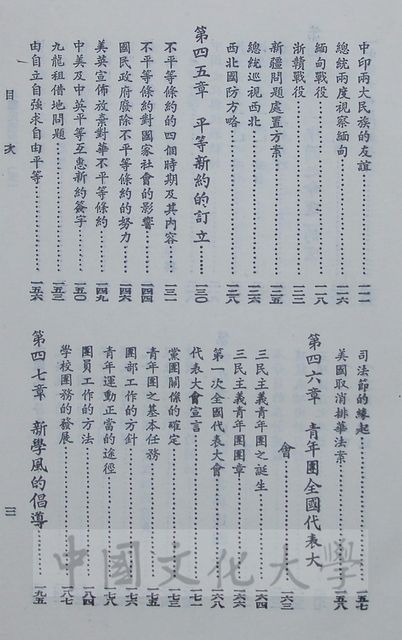 中印兩大民族的友誼……一一一
總統兩度視察緬甸……一一六
緬甸戰役……一一八
浙贛戰役……一二三
新疆問題處置方案……一二五
總統巡視西北……一二六
西北國防方略……一二八
第四五章 平等新約的訂立……一三〇
不平等條約的四個時期及其內容……一三一
不平等條約對國家社會的影響……一四四
國民政府廢除不平等條約的努力……一四六
美英宣佈放棄對華不平等條約……一四九
中美及中英平等互惠新約簽字……一五〇
九龍租借地問題……一五三
由自立自強求自由平等……一五六
司法節的緣起……一五七
美國取消排華法案……一五八
第四六章 青年團全國代表大
會……一六三
三民主義青年團之誕生……一六四
三民主義青年團團章……一六六
第一次全國代表大會……一六八
代表大會宣言……一七一
黨團關係的確定……一七三
青年團之基本任務……一七五
團部工作的方針……一七六
青年運動正當的途徑……一七八
團員工作的方法……一八四
學校團務的發展……一八七
第四七章 新學風的倡導……一九五
目次
三
中國文化大學